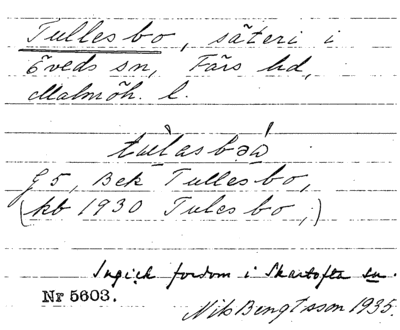 Tullesbo, säteri i
Öveds sn, Färs hd,
Malmöh. l.
tùlasbəá
G 5, Bek Tullesbo,
(kb 1930 Tulesbo,)
Ingick fordom i Skartofta sn.
Nr 5603.
Nils Bengtsson 1935.